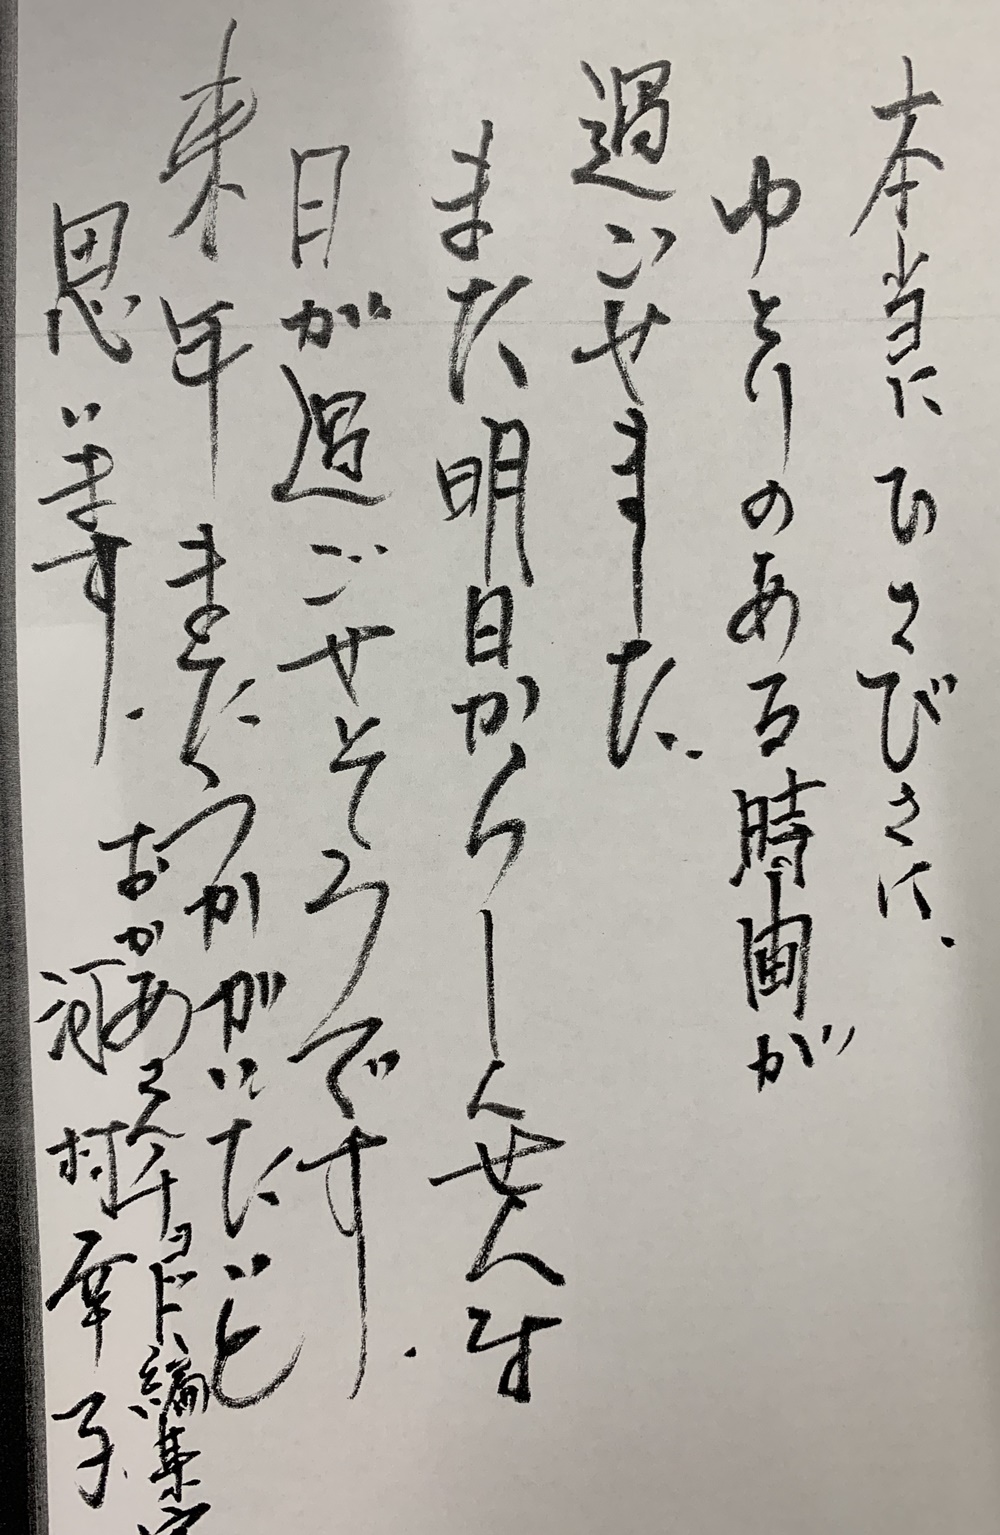 本当にひさびさに、
ゆとりのある時間が
過ごせました。
また明日からしんせんな
日が過ごせそうです。
来年またうかがいたいと
思います。
おかあ 編集
河村幸子